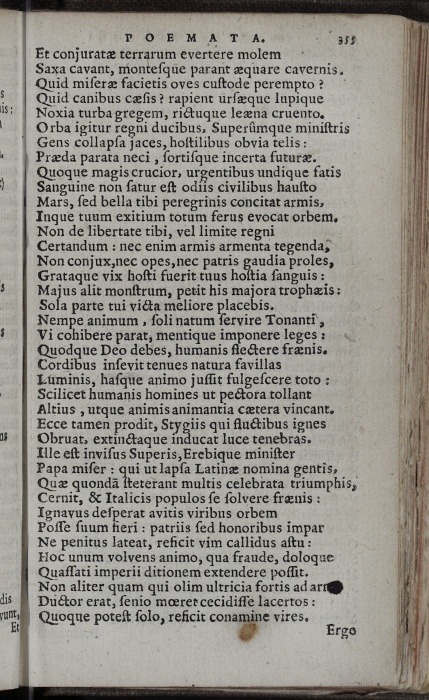 POEMATA. 355
Et conjuratæ terrarum evertere molem
Saxa cavant, montesque parant æquare cavernis.
Quid miseræ facietis oves custode perempto?
Quid canibus cæsis? rapient ursæque lupique
Noxia turba gregem, rictuque leæna cruento.
Orba igitur regni ducibus, Superûmque ministris
Gens collapsa jaces, hostilibus obvia telis:
Præda parata neci, sortisque incerta futuræ.
Quoque magis crucior, urgentibus undique fatis
Sanguine non satur est odiis civilibus hausto
Mars, sed bella tibi peregrinis concitat armis,
Inque tuum exitium totum ferus evocat orbem.
Non de libertate tibi, vel limite regni
Certandum: nec enim armis armenta tegenda,
Non conjux, nec opes, nec patris gaudia proles,
Grataque vix hosti fuerit tuus hostia sanguis:
Majus alit monstrum, petit his majora trophæis:
Sola parte tui victa meliore placebis.
Nempe animum, soli natum servire Tonanti,
Vi cohibere parat, mentique imponere leges:
Quodque Deo debes, humanis flectere frænis.
Cordibus insevit tenues natura favillas
Luminis, hasque animo jussit fulgescere toto:
Scilicet humanis homines ut pectora tollant
Altius, utque animis animantia cætera vincant.
Ecce tamen prodit, Stygiis qui fluctibus ignes
Obruat, extinctaque inducat luce tenebras.
Ille est invisus Superis, Erebique minister
Papa miser: qui ut lapsa Latinæ nomina gentis,
Quæ quondã steterant multis celebrata triumphis,
Cernit, & Italicis populos se solvere frænis:
Ignavus desperat avitis viribus orbem
Posse suum fieri: patriis sed honoribus impar
Ne penitus lateat, reficit vim callidus astu:
Hoc unum volvens animo, qua fraude, doloque
Quassati imperii ditionem extendere possit.
Non aliter quam qui olim ultricia fortis ad
Ductor erat, senio mœret cecidisse lacertos:
Quoque potest solo, reficit conamine vires.
Ergo